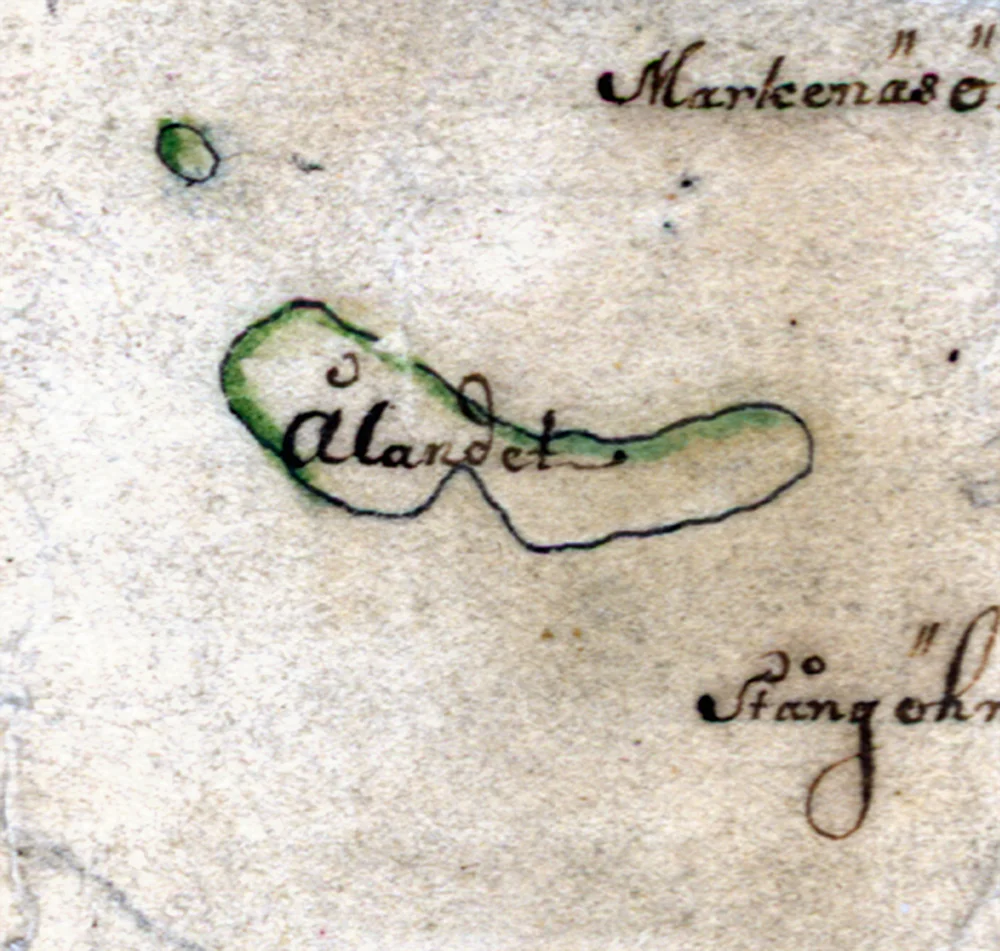 Markenäsö
Ålandet
Stångöhr